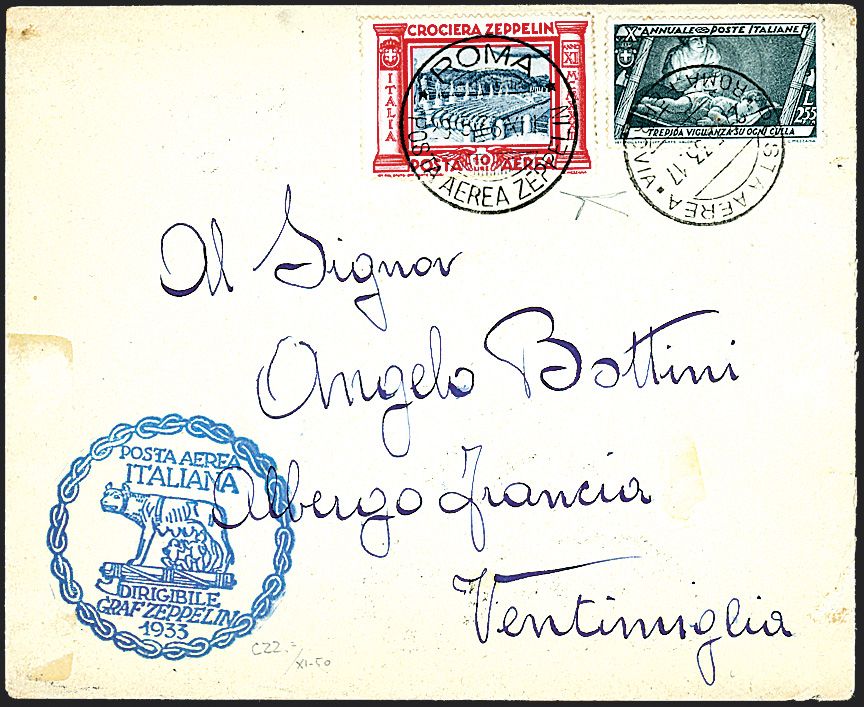 CROCIERA ZEPPELIN
ITALIA
ANNO XI
10
POSTA AEREA
ROMA
POSTA AEREA ZEPPELIN
X° ANNUALE POSTE ITALIANE
L 2,55
TREPIDA VIGILANZA SU OGNI CULLA
ROMA
POSTA AEREA
33.17
Al Signor
Angelo Bottini
Albergo Francia
Ventimiglia
POSTA AEREA
ITALIANA
DIRIGIBILE
GRAF ZEPPELIN
1933
C22=
/XI-50